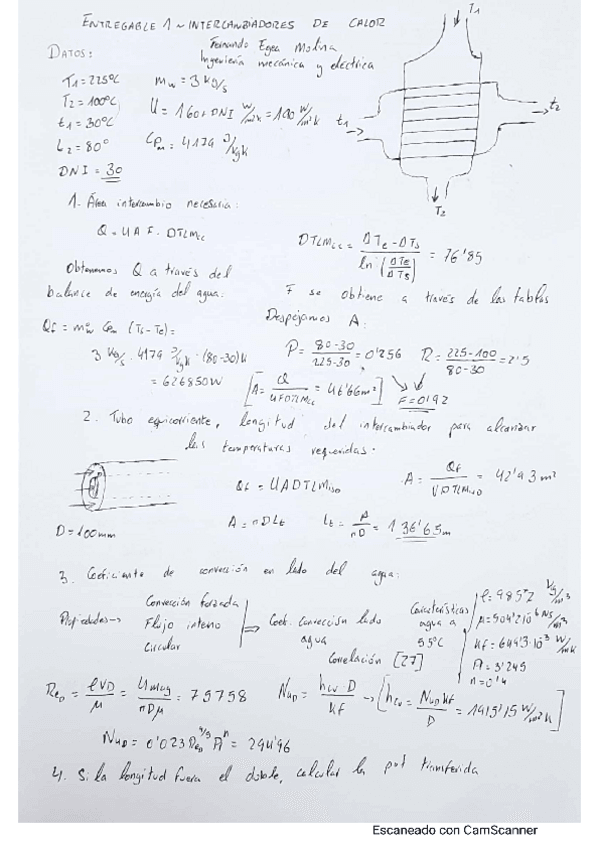 ENTREGABLE 1 ~ INTERCAMBIADORES DE CALOR
Fernando Egea Molina
Ingeniería mecánica y eléctrica
DATOS:
T1 = 225ºC
T2 = 100ºC
t1 = 30ºC
t2 = 80º
DNI = 30
mw = 3 kg/s
U = 160 + DNI W/m²K = 190 W/m²K
Cpm = 4179 J/kgK
T1
t1
t2
T2
1. Área intercambio necesaria:
Q = U A F · DTLMcc
DTLMcc = (ΔTe - ΔTs) / ln(ΔTe/ΔTs) = 76'85
Obtenemos Q a través del
balance de energía del agua.
F se obtiene a través de las tablas
Despejamos A:
Qf = mw Cpm (Ts - Te) =
3 kg/s · 4179 J/kgK · (80-30)K
= 626850W
P = (80-30)/(225-30) = 0'256
R = (225-100)/(80-30) = 2'5
[A = Q/(U F DTLMcc) = 46'66m²]
F = 0'92
2. Tubo equicorriente, longitud del intercambiador para alcanzar
las temperaturas requeridas.
D = 100mm
Qf = U A DTLM
A = Qf/(U DTLM) = 42'93 m²
A = πDLt
Lt = A/πD = 136'65m
3. Coeficiente de convección en lado del agua:
Propiedades →
Convección forzada
Flujo interno
Circular
⇒ Coef. convección lado
agua
Correlación [27]
Características
agua a
55ºC
ρ = 985'2 kg/m³
μ = 504'2·10⁻⁶ Ns/m²
kf = 649'3·10⁻³ W/mK
Pr = 3'245
n = 0'4
ReD = ρVD/μ = 4mag/πDμ = 75758
NuD = hcw·D/kf → [hcw = NuD kf/D = 1915'15 W/m²K]
NuD = 0'023 ReD^4/5 Pr^n = 294'96
4. Si la longitud fuera el doble, calcular la pot transferida
Escaneado con CamScanner